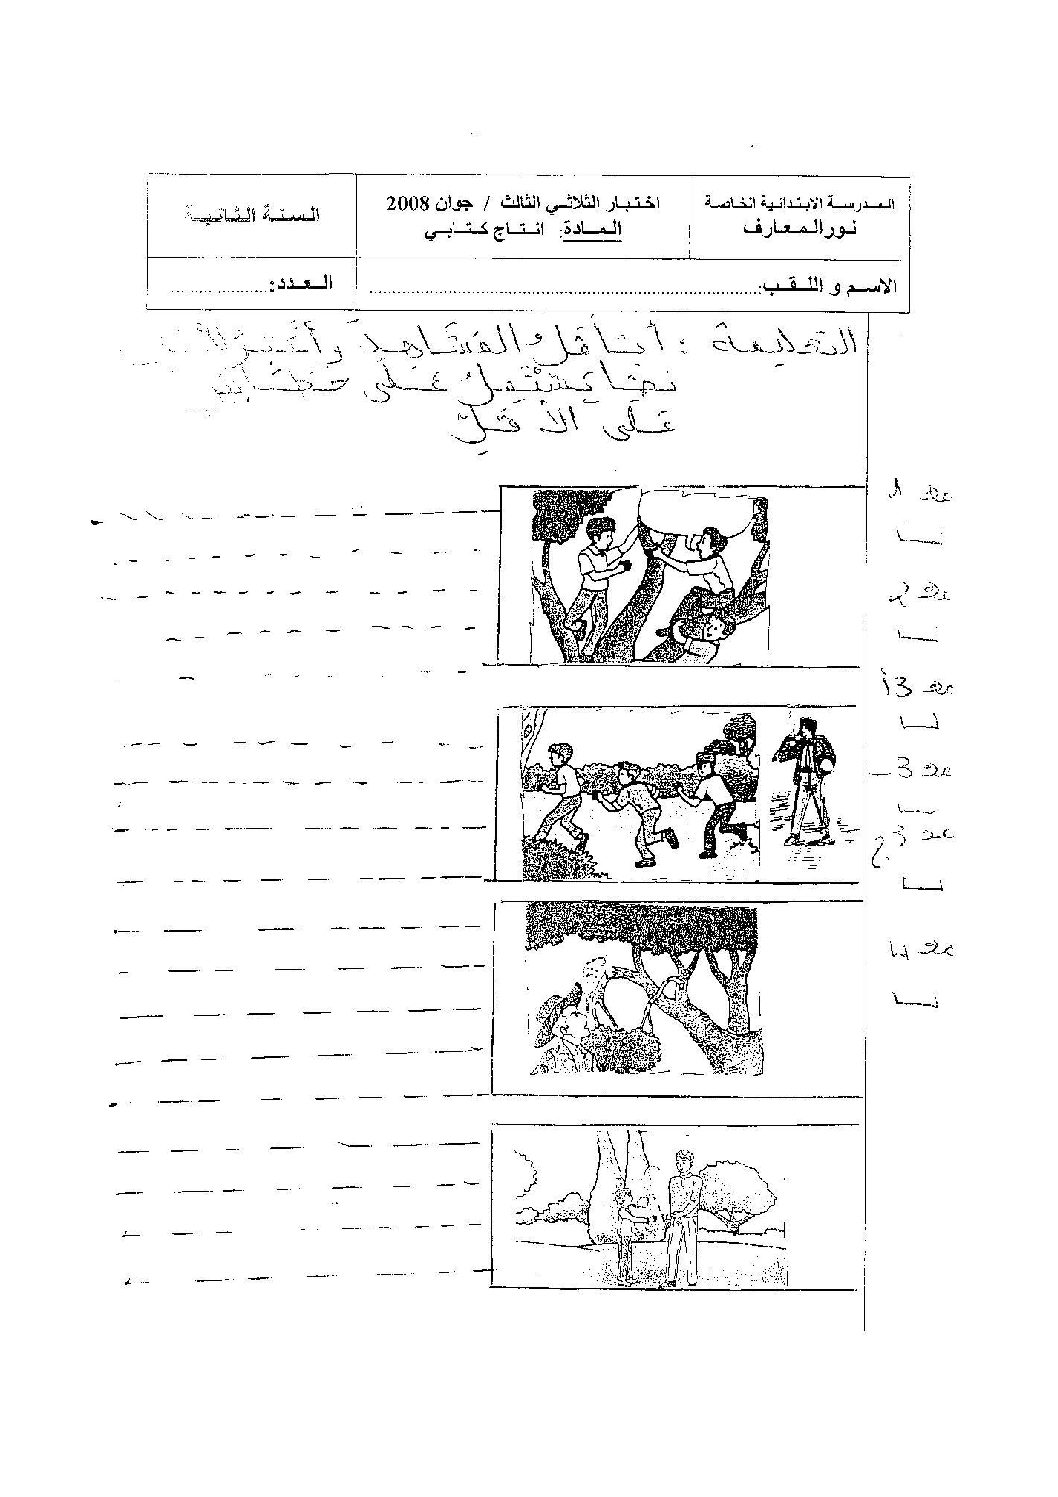 المدرسة الابتدائية الخاصة
نور المعارف
اختبار الثلاثي الثالث / جوان 2008
المادة: انتاج كتابي
السنة الثانية
الاسم و اللقب:
العدد:
التعليمة : أتأمّل المشاهد و
نصا يشتمل على
على الأقل
مع 1
مع 2
مع 3 أ
مع 3
مع 3 ج
مع 4